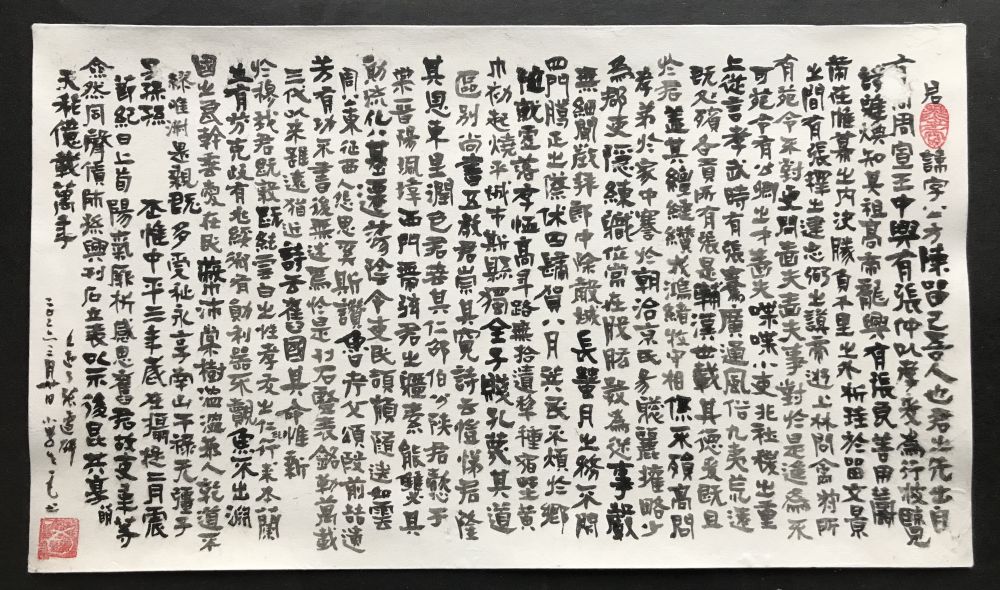 君諱字公方陳留己吾人也君之先出自
有周周宣王中興有張仲以孝友為行披覽
詩雅煥知其祖高帝龍興有張良善用籌
策在帷幕之內決勝負千里之外析珪於留文景
之間有張釋之建忠弼之謨帝遊上林問禽狩所
有苑令不對更問嗇夫嗇夫事對於是進為不
可苑令有公卿之才嗇夫喋喋小吏非社稷之重
上從言孝武時有張騫廣通風俗九夷荒遠
既殯各貢所有張是輔漢世載其德爰既且
於君蓋其繵縺纘戎鴻緒牧守相係不殞高問
孝弟於家中謇於朝治京氏易聰麗權略少
為郡吏隱練職位常在股肱數為從事聲
無細聞徵拜郎中除穀城長蠶月之務不閉
四門臘正之祭休囚歸賀八月算民不煩於鄉
隨就虛落存恤高年路無拾遺犁種宿野黃
巾初起燒平城市斯縣獨全子賤孔蔑其道
區別尚書五教君崇其寬詩云愷悌君隆
其恩東里潤色君垂其仁邵伯分陝君懿于
棠晉陽珮瑋西門帶弦君之體素能雙其
勛流化八基遷蕩陰令吏民頡頏隨送如雲
周公東征西人怨思奚斯讚魯考父頌殷前喆遺
芳有功不書後無述焉於是刊石豎表銘勒萬載
三代以來雖遠猶近詩云舊國其命惟新
於穆我君既敦既純雪白之性孝友之仁紀行來本蘭
生有芬克岐有兆綏御有勛利器不覿魚不出淵
國之良幹垂愛在民蔽沛棠樹溫溫恭人乾道不
繆唯淑是親既多受祉永享南山干祿无疆子
子孫孫惟中平三年歲在攝提二月震
節紀日上旬陽氣厥析感思舊君故吏韋萌等
僉然同聲賃師孫興刊石立表以示後昆共享
天祚億載萬年
張遷碑